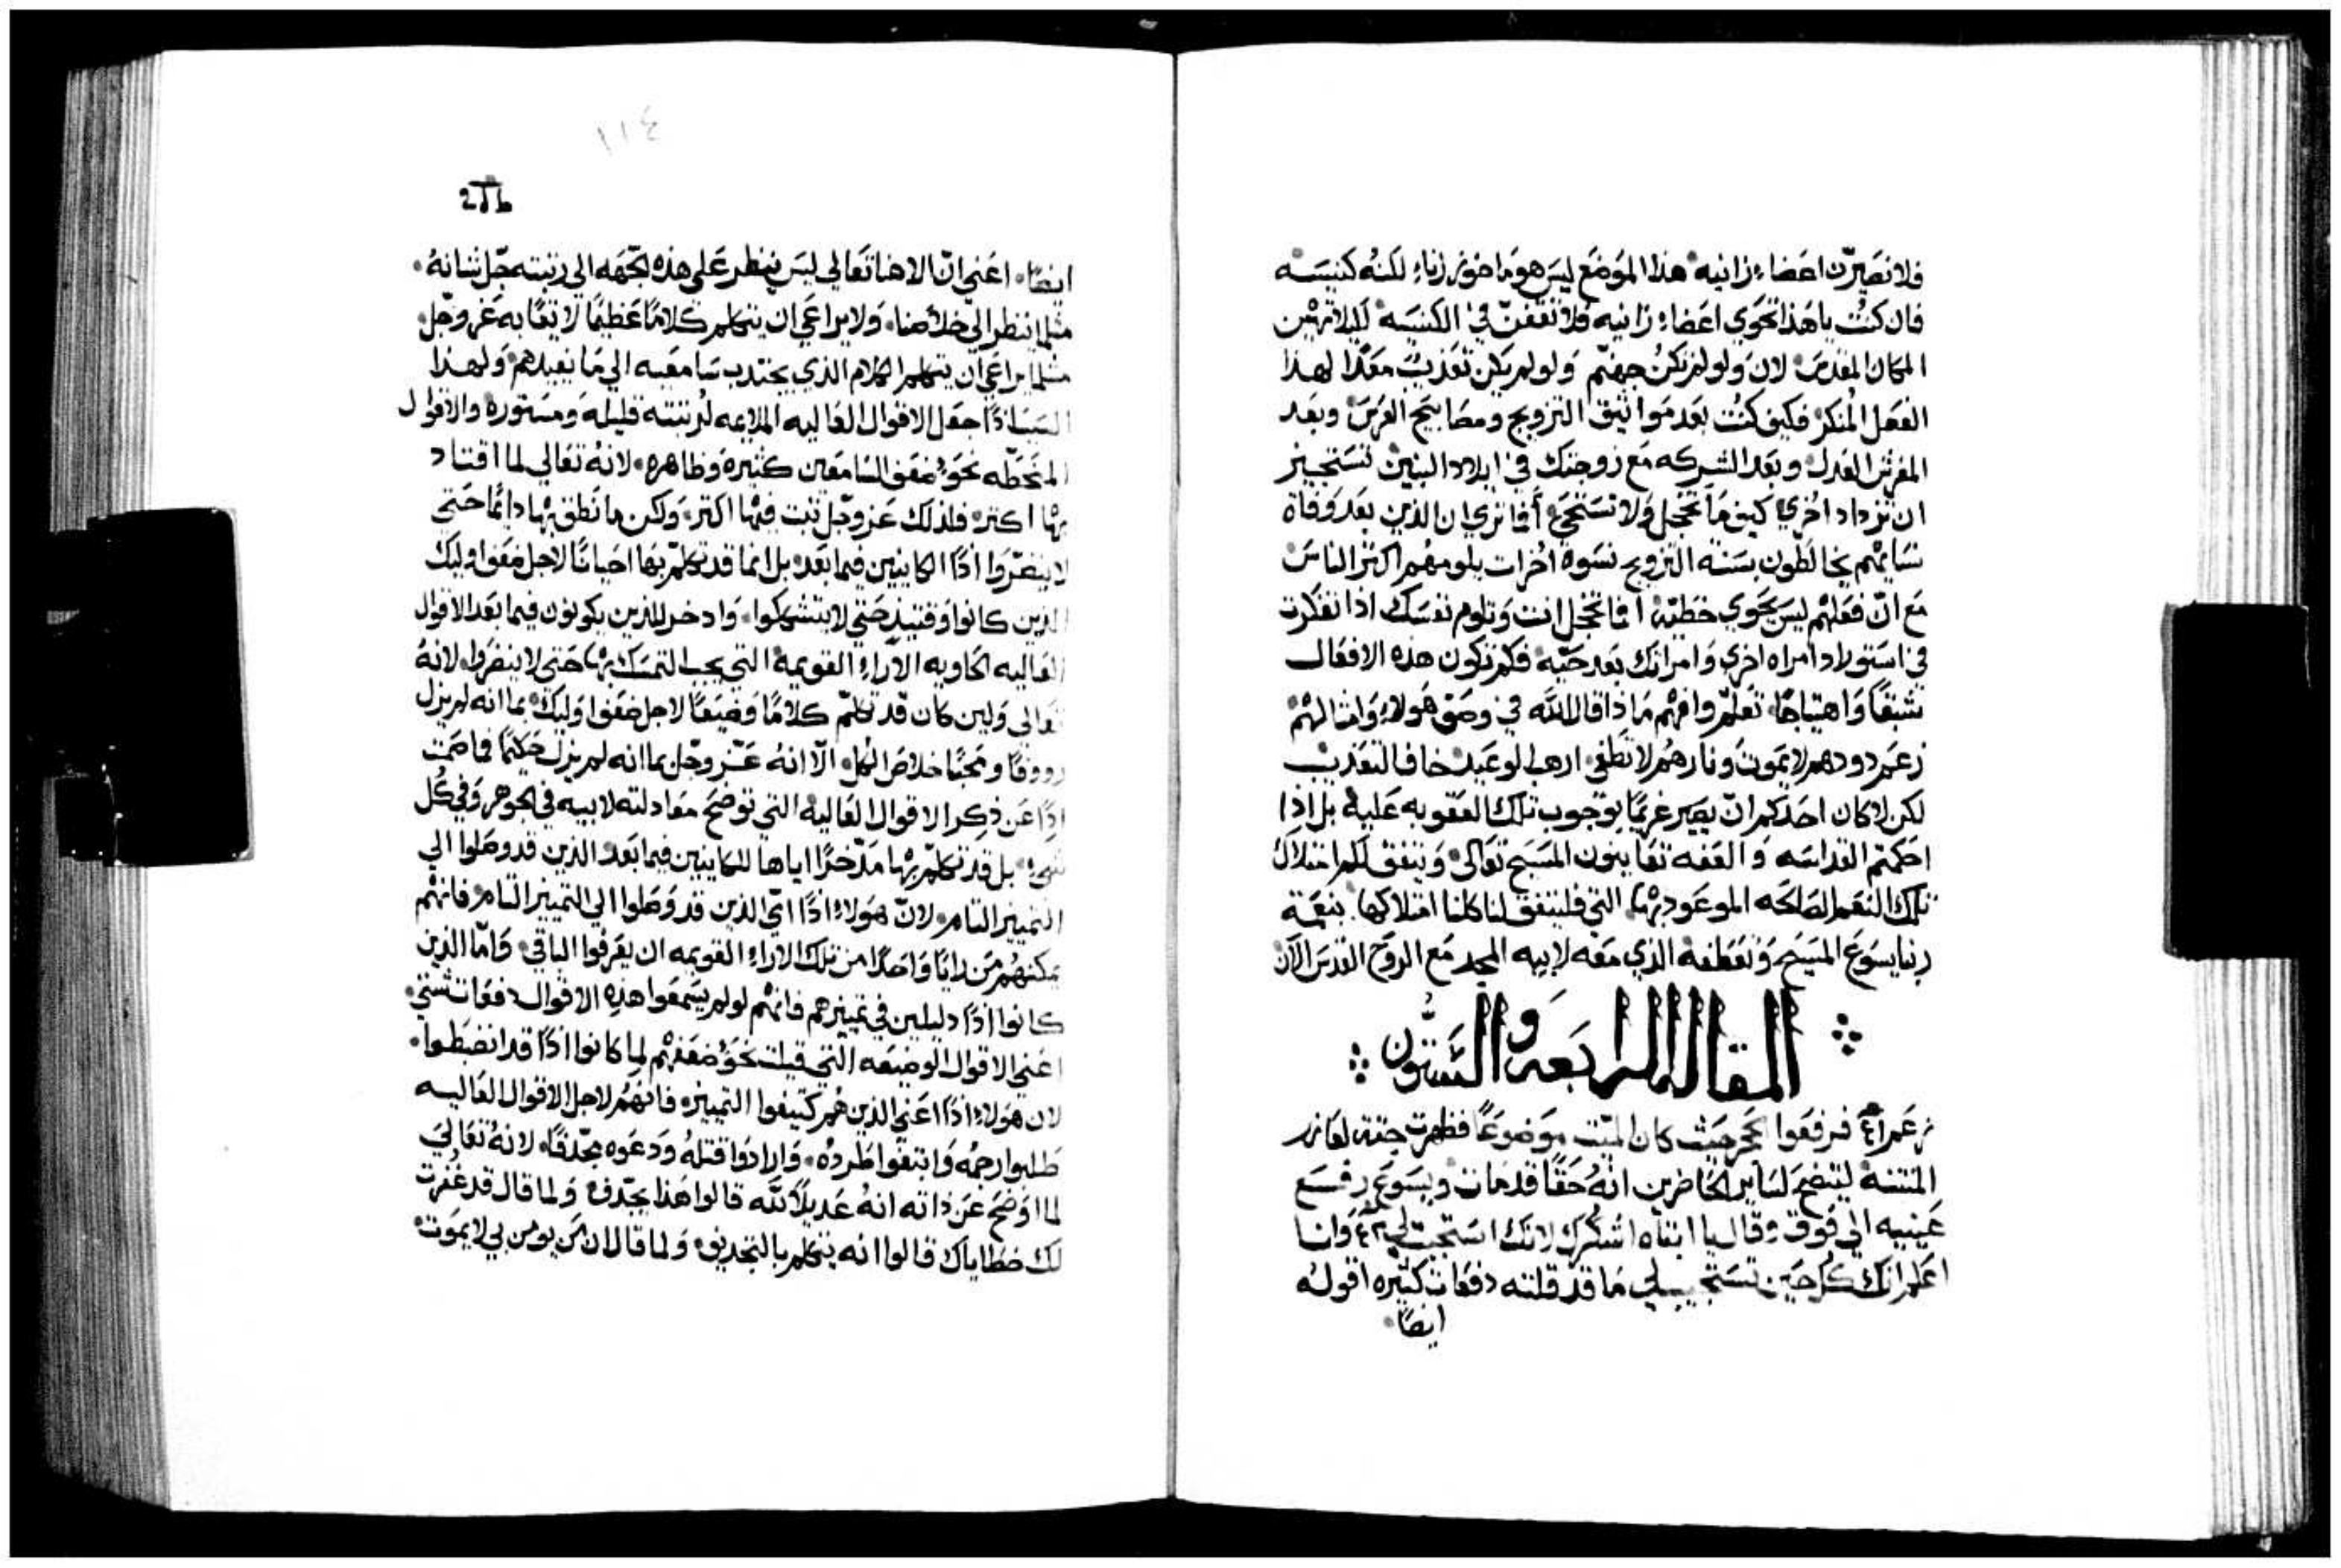 فلا تصيرّن اعضاء زانيه هذا الموضع ليس هو ماخور زناء لكنه كنيسه
فان كنت يا هذا تحوي اعضاء زانيه فلا تقفنّ في الكنيسه ليلا تهين
المكان المقدس لان ولو لم تكن جهنم ولو لم يكن تعذيب معدًا لهذا
الفعل المنكر فكيف كنت بعد مواثيق التزويج ومصابيح العرس وبعد
المفرش العدل وبعد الشركه مع زوجتك في ايلاد البنين تستجيز
ان تزداد اخري كيف ما تخجل ولا تستحي أفما تري ان الذين بعد وفاة
نسايهم يخالطون بسنة التزويج نسوة اخرات يلومهم اكثر الناس
مع انّ فعلهم ليس يحوي خطيّه أفما تخجل انت وتلوم نفسك اذا تفكرت
في استيلاد امراه اخري وامراتك بعد حيّه فكم تكون هذه الافعال
شبقًا واهتياجًا تعلّم وافهم ماذا قال الله في وصف هولاء وامثالهم
زعم دودهم لا يموت ونارهم لا تطفي ارهب الوعيد خاف التعذيب
لكن لا كان احدكم ان يصير غريمًا بوجوب تلك العقوبه عليه بل اذا
احكمتم القداسه والعفه تعاينون المسيح تعالي ويتفق لكم امتلاك
تلك النعم الصالحه الموعود بها التي فليتفق لنا كلنا امتلاكها بنعمة
ربنا يسوع المسيح وتعطفه الذي معه لابيه المجد مع الروح القدس الآن
المقاله الرابعه والستّون
فرفعوا الحجر حيث كان الميّت موضوعًا فظهرت جثة لعازر
المنتنة ليتضح لساير الحاضرين انه حقًا قد مات ويسوع رفع
عينيه الي فوق وقال يا ابتاه اشكرك لانك استجبت لي ٤٢ وانا
اعلم انك كل حين تستجيب لي ما قد قلته دفعات كثيره اقوله
ايضًا
١١٤
ايضًا اعني انّ الاهنا تعالي ليس ينظر علي هذه الجهه الي رتبته جّل شانه
مثلما ينظر الي خلاصنا ولا يراعي ان يتكلم كلامًا عظيمًا لايقًا به عز وجّل
مثلما يراعي ان يتكلم الكلام الذي يجتدب سامعيه الي ما يفيدهم ولهذا
اذًا جعل الاقوال العاليه الملايمه لرتبته قليله ومستوره والاقوال
المنحطّه نحو ضعف السامعين كثيره وظاهره لانه تعالي لما اقتاد
بها اكثر فلذلك عز وجّل ثبت فيها اكثر ولكن ما نطق بها دايمًا حتي
لا ينضرّوا اذًا الكاينين فيما بعد بل انما قد تكلّم بها احيانًا لاجل ضعف اوليك
الذين كانوا وقتيذ حتي لا يتشككوا وادخر للذين يكونون فيما بعد الاقوال
العاليه الحاويه الآراء القويمه التي يجب التمسك بها حتي لا ينضروا لانه
تعالي ولين كان قد تكلّم كلامًا وضيعًا لاجل ضعف اوليك بما انه لم يزل
رووفًا ومحبًا خلاص الكل الّا انه عزّ وجّل بما انه لم يزل حكيمًا فما صمت
اذًا عن ذكر الاقوال العاليه التي توضح معادلته لابيه في الجوهر وفي كل
شي بل قد تكلّم بها مدّخرًا اياها للكاينين فيما بعد الذين قد وصلوا الي
التمييز التام لانّ هولاء اذًا اي الذين قد وصلوا الي التمييز التام فانهم
يمكنهم من رايًا واحدًا من تلك الآراء القويمه ان يعرفوا الباقي وامّا الذين
كانوا اذًا دليلين في تمييزهم فانهم لو لم يسمعوا هذه الاقوال دفعات شتي
اعني الاقوال الوضيعه التي قيلت نحو ضعفهم لما كانوا اذًا قد انضبطوا
لان هولاء اذًا اعني الذين هم كثيفوا التمييز فانهم لاجل الاقوال العاليه
طلبوا رجمه وابتغوا طرده وارادوا قتله ودعوه مجّدفًا لانه تعالي
لما اوضح عن ذاته انه عديلاً لله قالوا هذا يجّدف ولما قال قد غفرت
لك خطاياك قالوا انه يتكلم بالتجديف ولما قال ان من يومن بي لا يموت